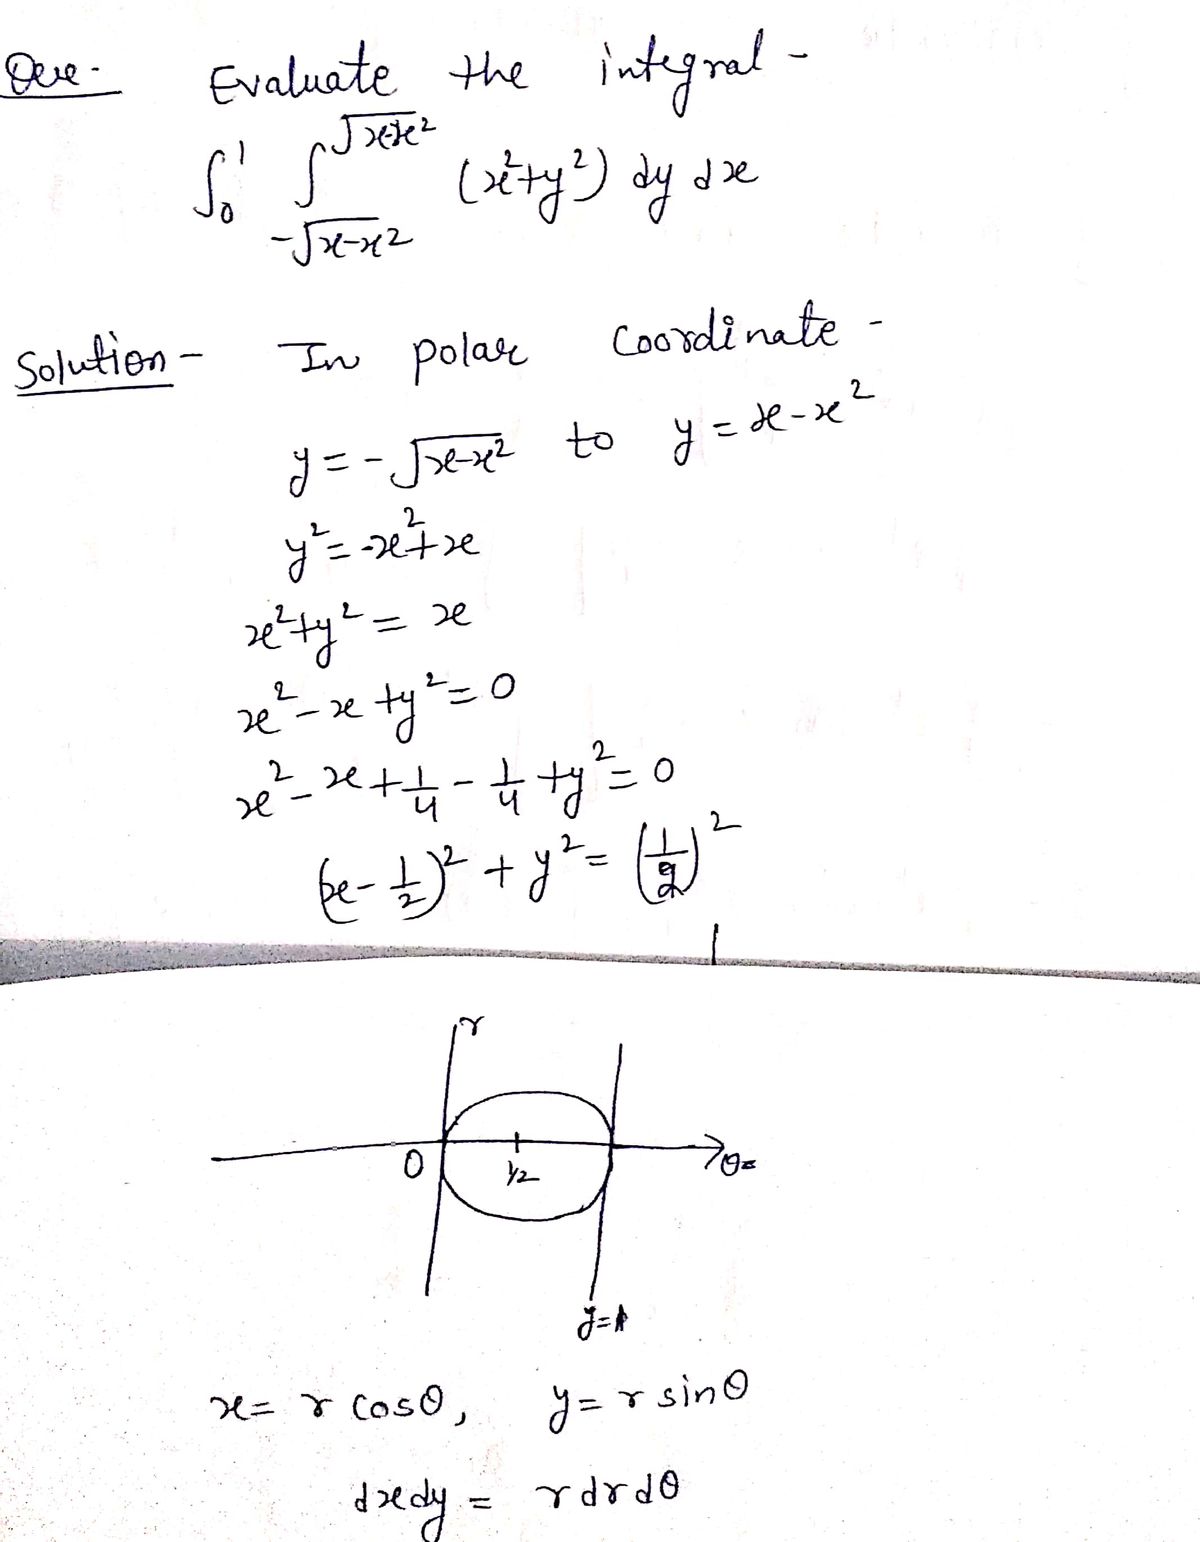 Que- Evaluate the integral -
∫₀¹ ∫_{-√x-x²}^{√x-x²} (x²+y²) dy dx
Solution - In polar Coordinate -
y = -√x-x² to y = x-x²
y² = -x²+x
x²+y² = x
x²-x+y² = 0
x²-x+1/4 - 1/4 +y² = 0
(x-1/2)² + y² = (1/2)²
r
0 1/2 θ=
y=1
x = r cosθ, y = r sinθ
dxdy = r dr dθ